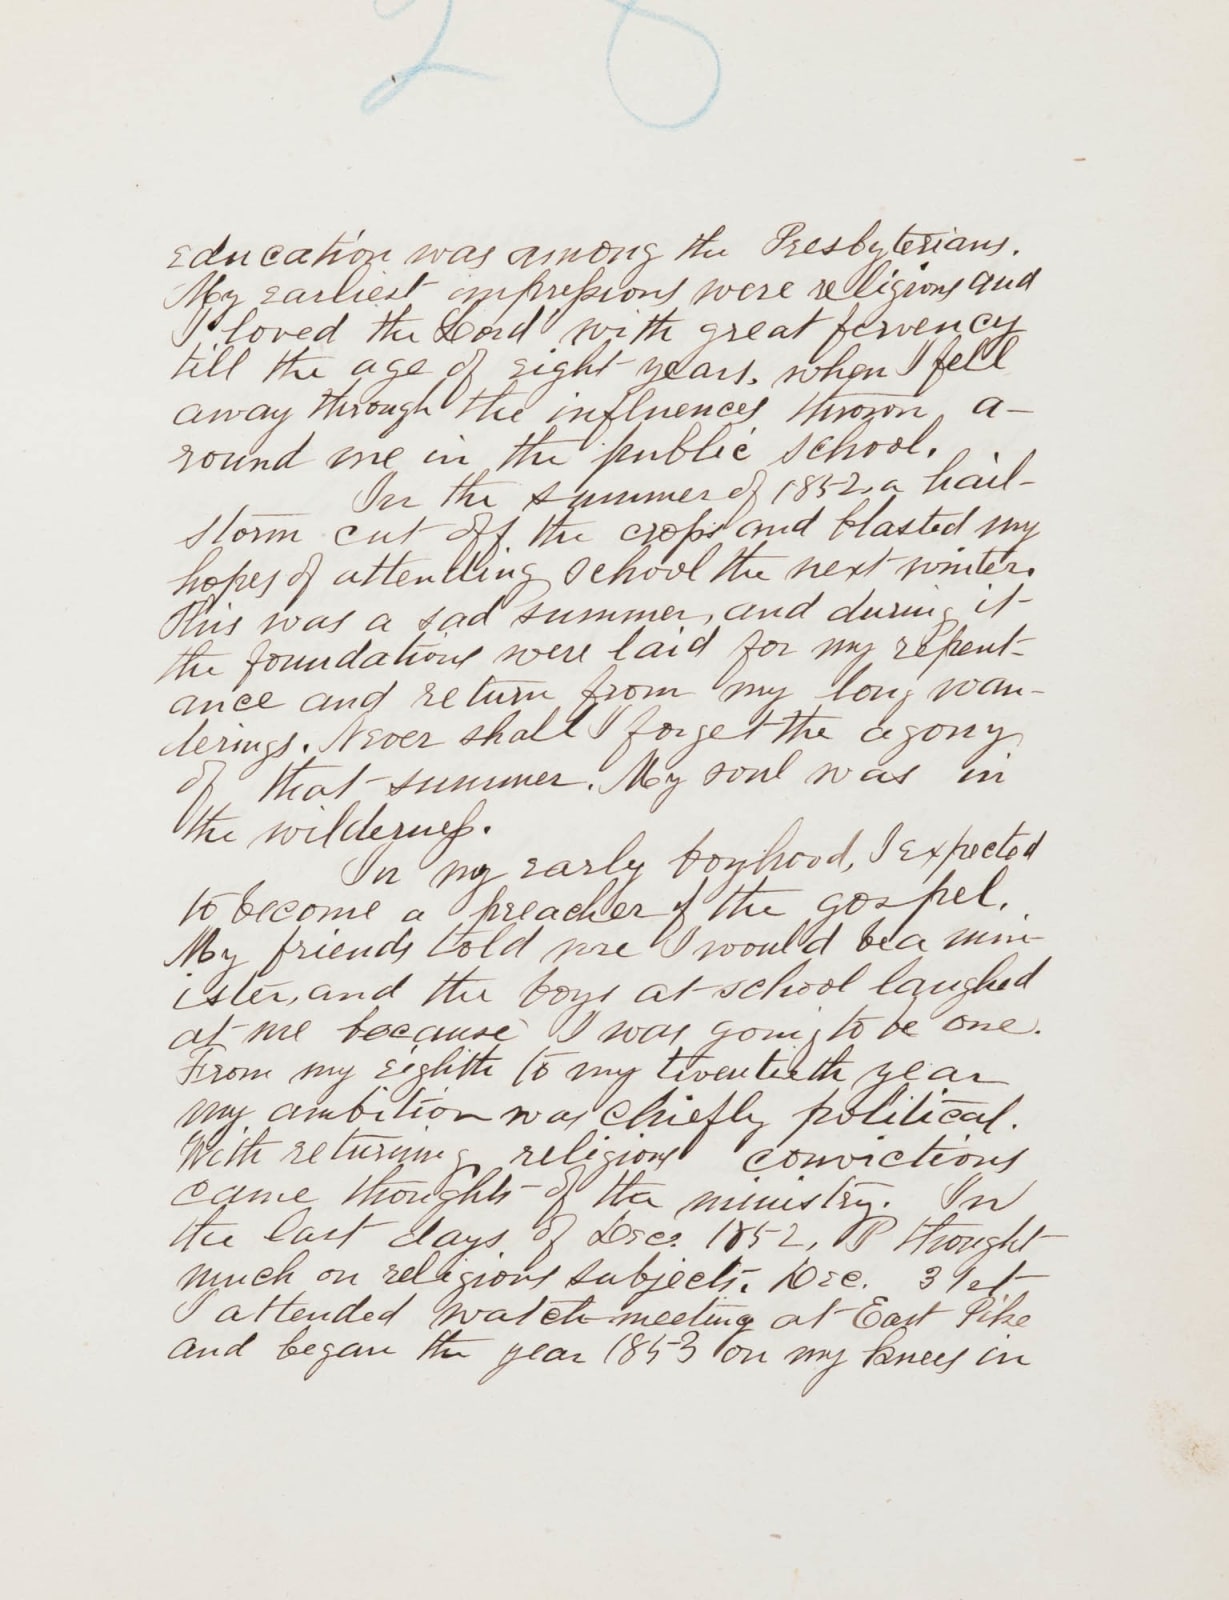 28
education was among the Presbyterians.
My earliest impressions were religious and
I loved the Lord with great fervency
till the age of eight years, when I fell
away through the influences thrown a-
round me in the public school.
In the summer of 1852, a hail-
storm cut off the crops and blasted my
hopes of attending school the next winter.
This was a sad summer, and during it
the foundations were laid for my repent-
ance and return from my long wan-
derings. Never shall I forget the agony
of that summer. My soul was in
the wilderness.
In my early boyhood, I expected
to become a preacher of the gospel.
My friends told me I would be a min-
ister, and the boys at school laughed
at me because I was going to be one.
From my eighth to my twentieth year
my ambition was chiefly political.
With returning religious convictions
came thoughts of the ministry. In
the last days of Dec. 1852, I thought
much on religious subjects. Dec. 31st
I attended watch-meeting at East Pike
and began the year 1853 on my knees in